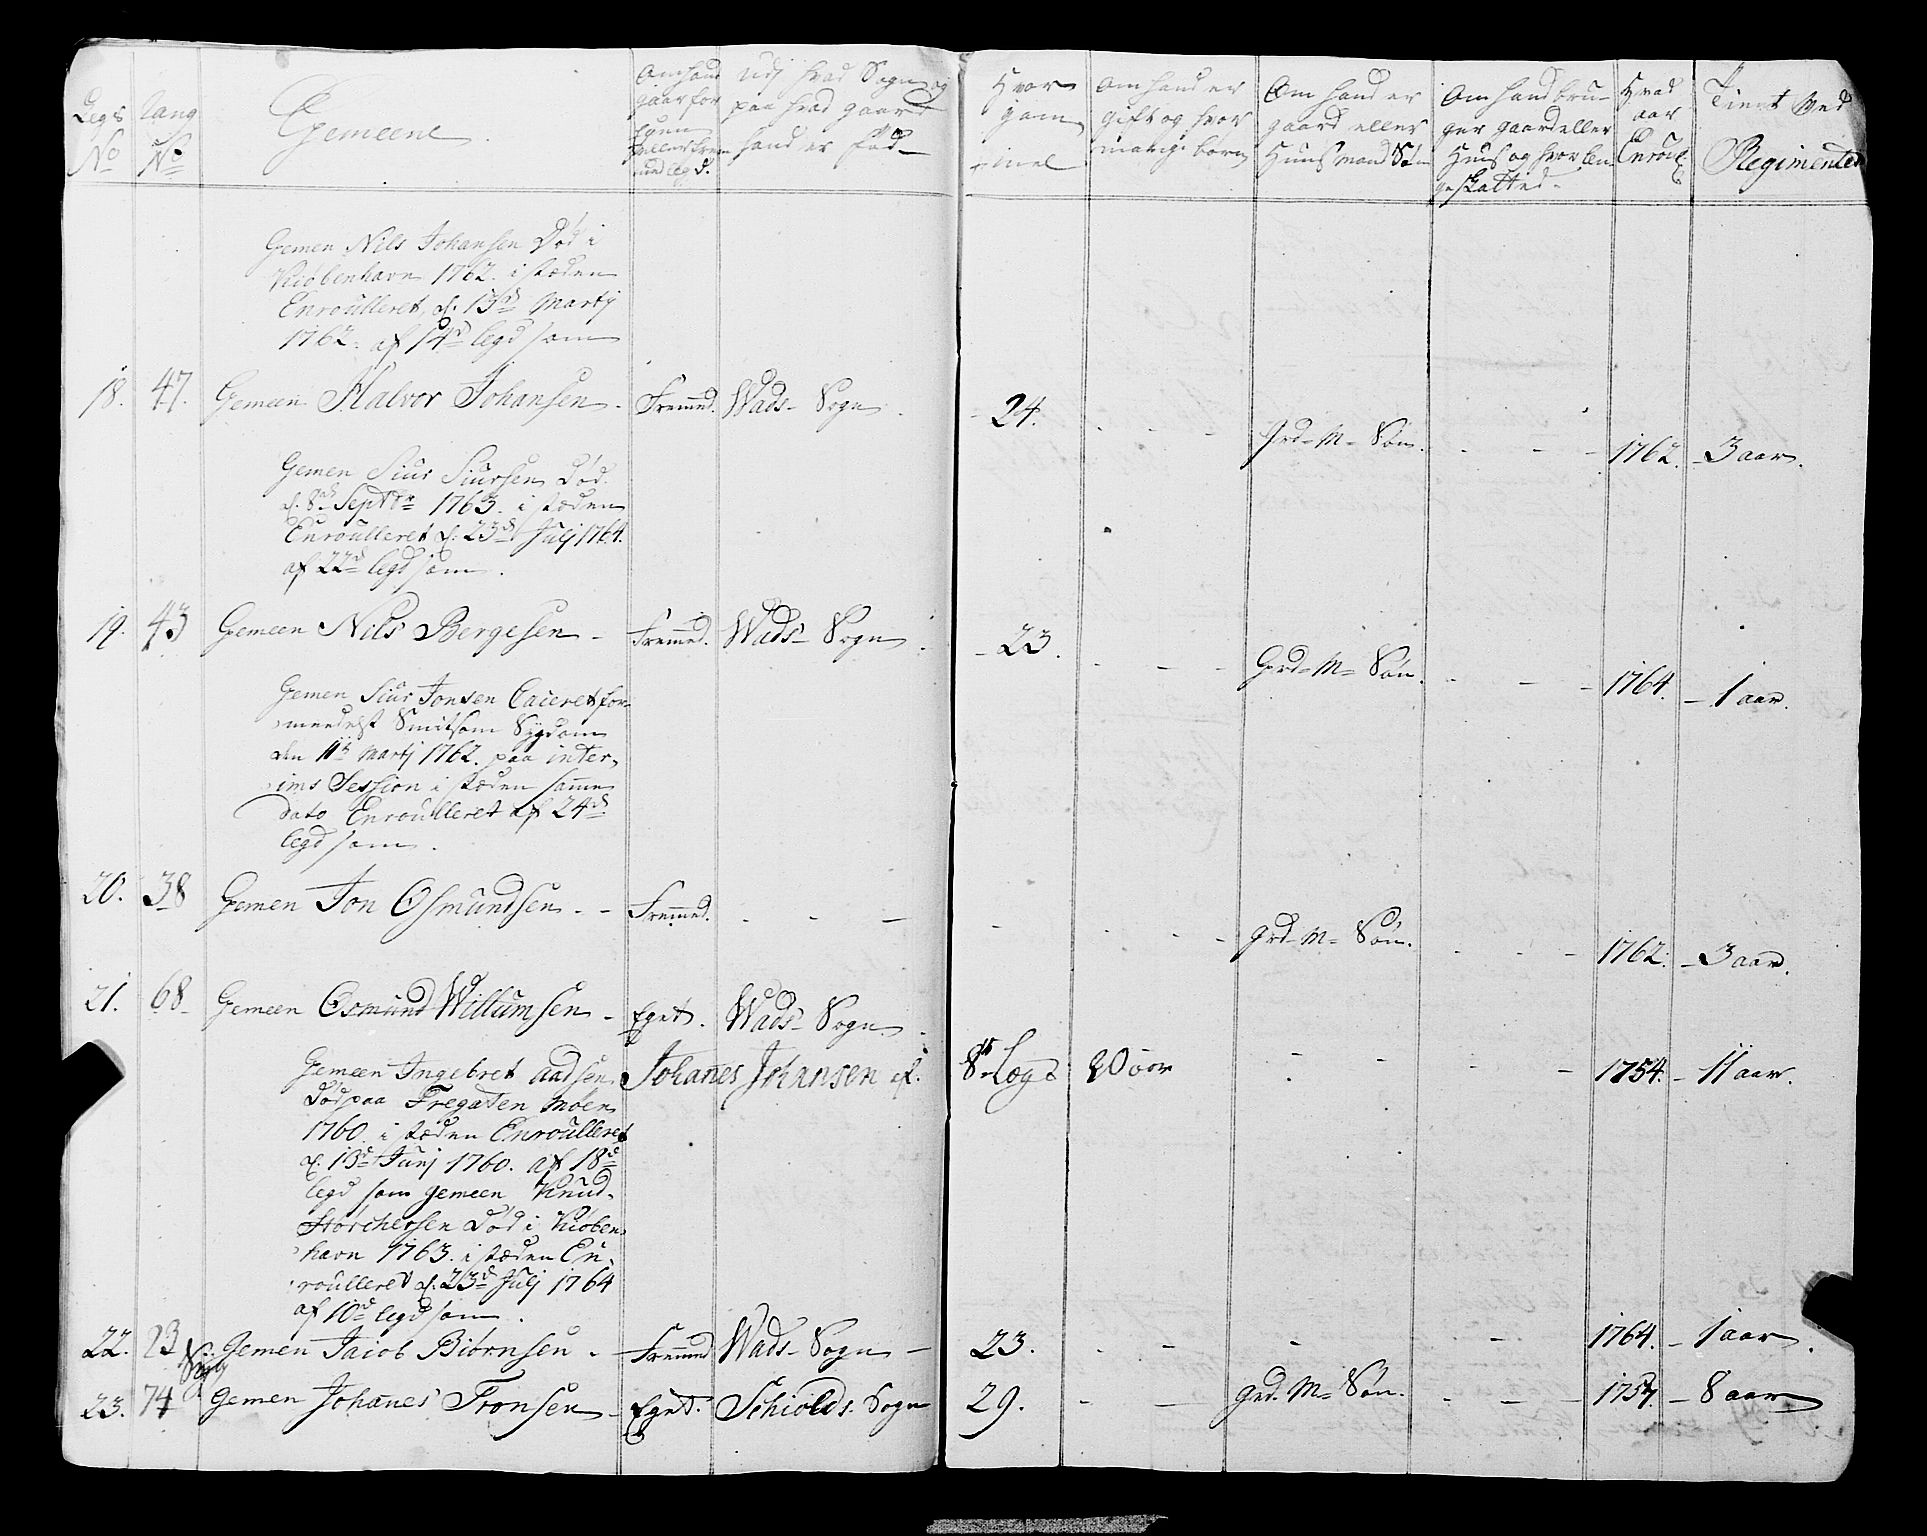 Legs No
Rang No
Gemeene
Om hand gaar for Egen eller frem med legd.
Udj hvad Sogn og paa hvad gaard hand er fød
Hvor gam mel
Om hand er gift og hvor mange børn
Om hand er gaard eller Huusmand Søn
Om hand bruger gaard eller Huus og hvor længe skatted
Hvad aar Enroul:
Tient ved Regimentet
Gemen Nils Johansen Död i
Kiöbenhavn 1762. i stæden
Enroulleret d. 13d Martj
1762. af 14d legd som
18. 47. Gemeen Halvor Johansen - Fremed. Wads - Sogn. - 24. - - - Grd - M - Søn. - - - 1762. - 3 aar.
Gemen Siur Siursen Död
d. 8de Septbr 1763. i stæden
Enroulleret d. 23d Julj 1764.
af 22d legd som.
19. 43 Gemeen Nils Bergesen - Fremed. Wads - Sogn. - 23. - - - Grd - M - Søn. - - - 1764. - 1 aar.
Gemen Siur Jonsen Caceret for
meedelst Smitsom Sygdom
den 11te Martj 1762. paa inter
ims Session i stæden samme
dato Enroulleret af 24d
legd som.
20. 38 Gemen Jon Osmundsen - - Fremed. - - - - - - Grd - M - Søn. - - - 1762. - 3 aar.
21. 68 Gemeen Osmund Willumsen - Eget. Wads - Sogn.
Johanes Johansen af. 8de Lægs 20 aar - - - - 1754. - 11 aar.
Gemeen Ingebret Aadsen
Död paa Fregaten Møen
1760. i stæden Enroulleret
d. 13d Junj 1760. af 18d
legd som gemeen Knud
Storchersen Död i Kiöben
havn 1763. i stæden En
roulleret d. 23d Julj 1764
af 10d legd som.
22. 23 Gemen Jacob Biørnsen - Fremmed Wads - Sogn - 23. - - - - 1764. - 1 aar.
23. 74 Gemen Johanes Tronsen - Eget. Schiolds Sogn 29. - - Grd. M - Søn. - - - 1757. - 8 aar